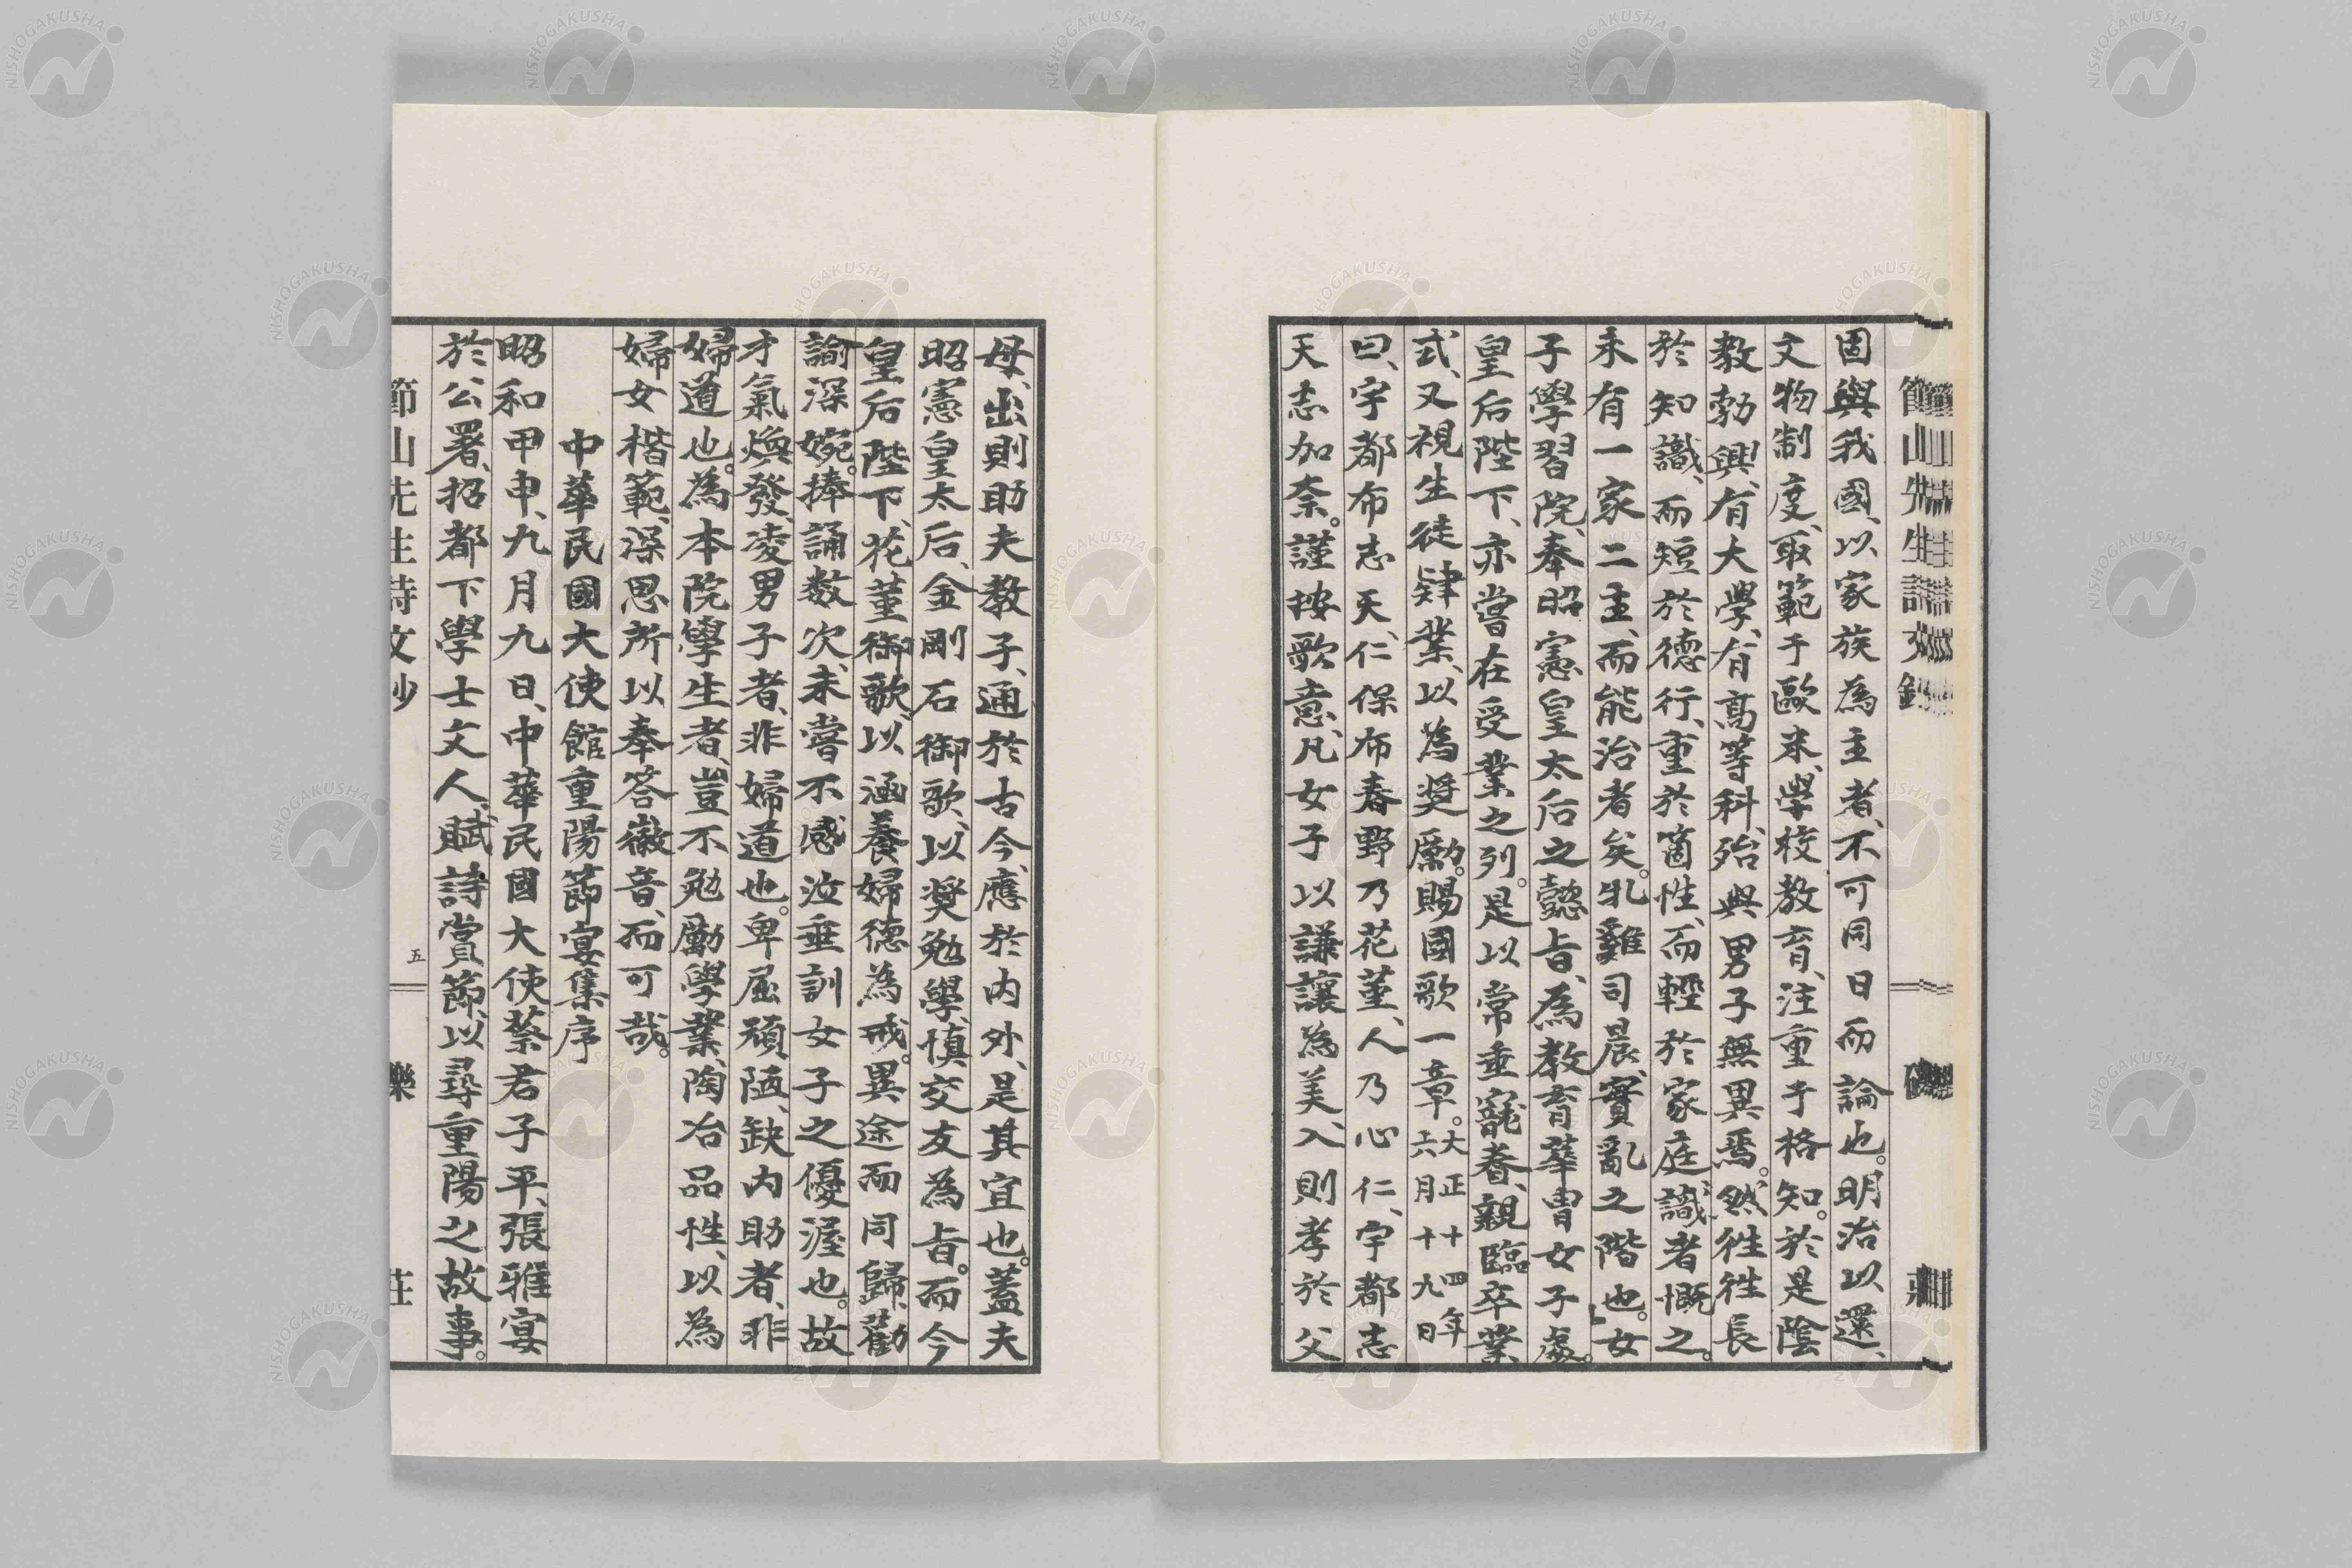 固與我國、以家族為主者、不可同日而論也。明治以還、
文物制度、取範于歐米、學校教育、注重于格知。於是陰
教勃興、有大學、有高等科、殆與男子無異焉。然徃徃長
於知識、而短於德行、重於箇性、而輕於家庭、識者慨之。
未有一家二主、而能治者矣。牝雞司晨、實亂之階也。女
子學習院、奉昭憲皇太后之懿旨、為教育華冑女子處。
皇后陛下、亦嘗在受業之列。是以常垂寵眷、親臨卒業
式、又視生徒肄業、以為奬勵。賜國歌一章。大正十四年六月十九日
曰、宇都布志天、仁保布春野乃花菫、人乃心仁、宇都志
天志加奈。謹按歌意、凡女子以謙讓為美、入則孝於父
母、出則助夫教子、通於古今、應於内外、是其宜也。蓋夫
昭憲皇太后、金剛石御歌、以奬勉學、慎交友為旨。而今
皇后陛下、花菫御歌、以涵養婦德為戒。異途而同歸、勸
諭深婉。捧誦数次、未嘗不感泣垂訓女子之優渥也。故
才氣煥發、凌男子者、非婦道也。卑屈頑陋、缺内助者、非
婦道也。為本院學生者、豈不勉勵學業、陶冶品性、以為
婦女楷範、深思所以奉答徽音、而可哉。
中華民國大使館重陽節宴集序
昭和甲申、九月九日、中華民國大使、蔡君子平、張雅宴
於公署、招都下學士文人、賦詩賞節、以尋重陽之故事。
節山先生詩文鈔
五
樂
莊
NISHOGAKUSHA